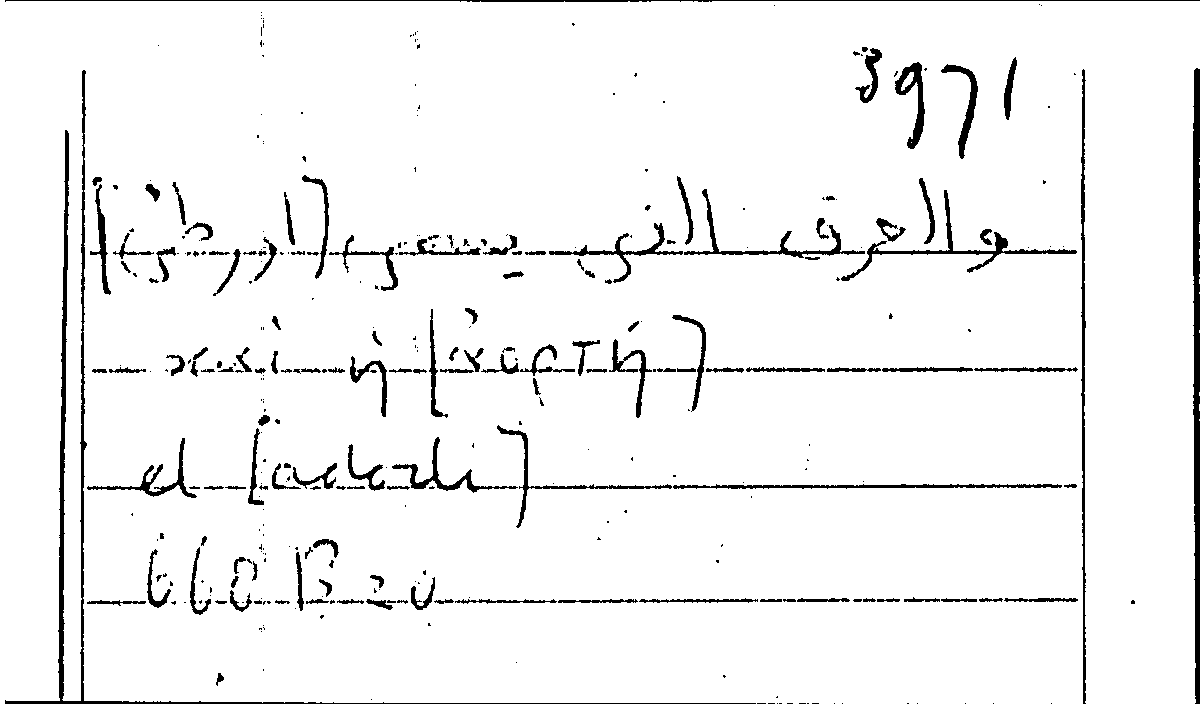 3971
والعرق الذى يسمى [اورطى]
καὶ ἡ [ἀορτή]
et [adorti]
668 B 20